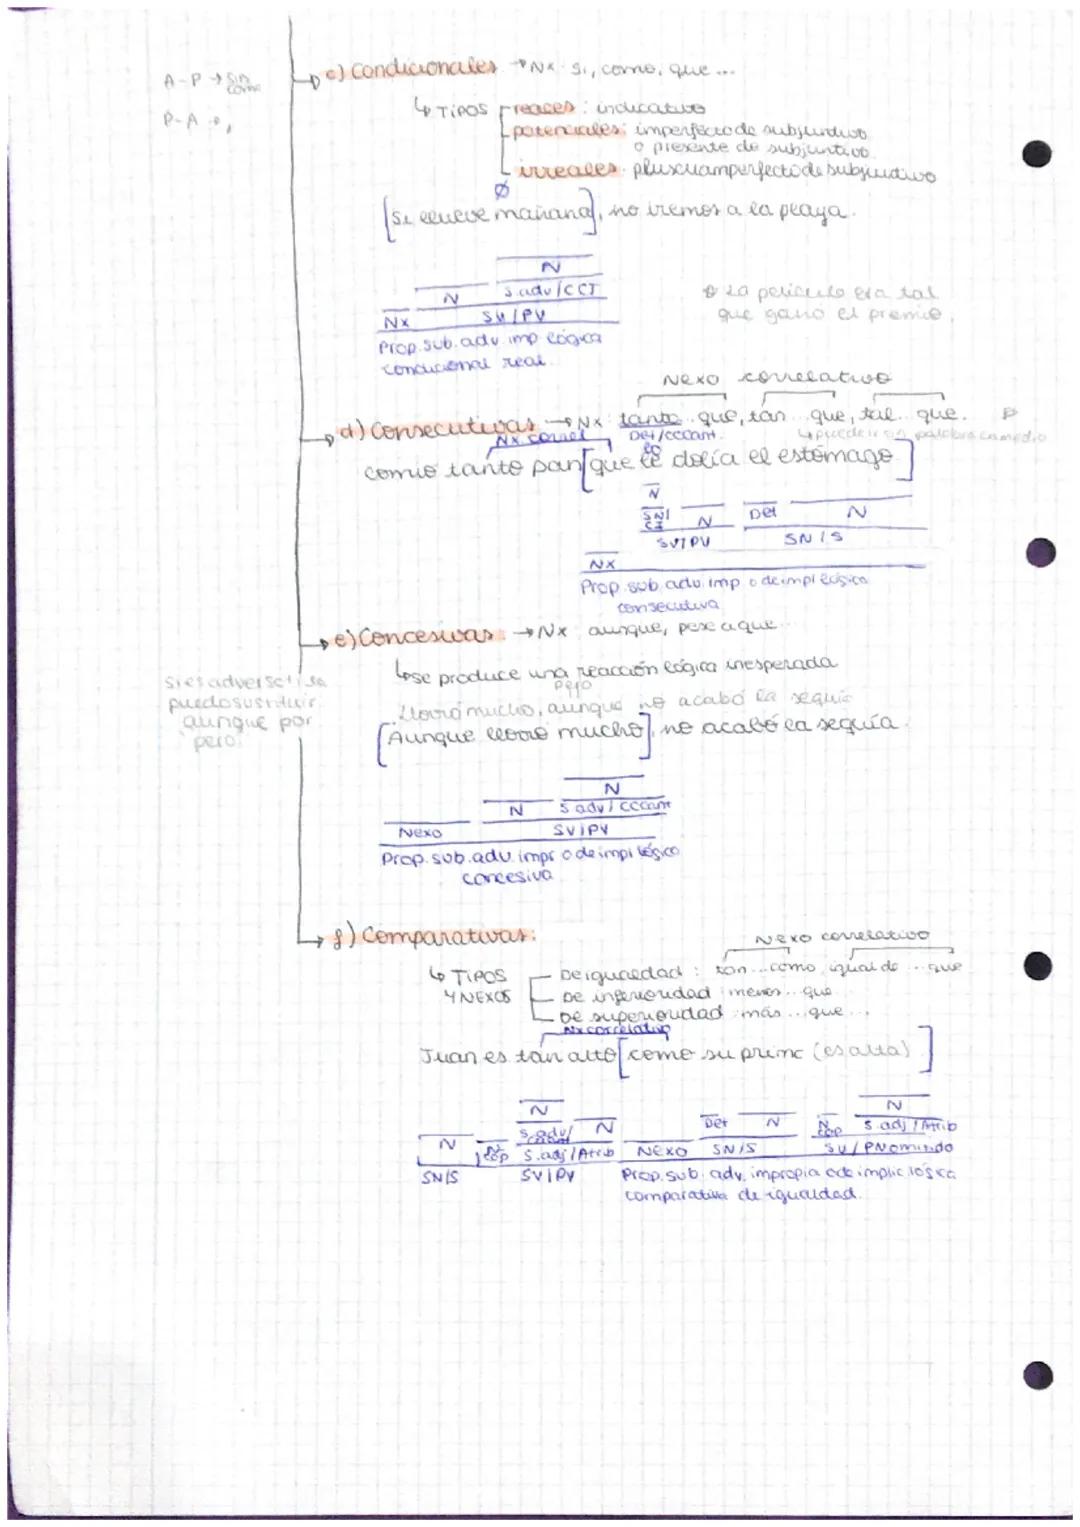 A-P → sin coma
P-A → ,
c) Condicionales → Nx: si, como, que...
↳ TIPOS
reales: indicativo
potenciales: imperfecto de subjuntivo
o presente de subjuntivo
irreales: pluscuamperfecto de subjuntivo
Ø
[Si llueve mañana], no iremos a la playa.
N
N S.adv/CCT
Nx SV/PV
Prop.sub.adv.imp lógica
condicional real
La película era tal
que ganó el premio.
Nexo correlativo
d) Consecutivas → Nx: tanto...que, tan...que, tal...que.
Nx correl Det/CCCant. ↳ puede ir sin palabra en medio
lo
Comió tanto pan [que le dolía el estómago]
N
SN/CI N Det N
SV/PV SN/S
NX
Prop.sub.adv.imp o de impl lógica
consecutiva
e) Concesivas: → Nx: aunque, pese a que...
↳ se produce una reacción lógica inesperada
si es adversativa
puedo sustituir
aunque por
pero
pero
Llovió mucho, aunque no acabó la sequía
[Aunque llovió mucho], no acabó la sequía.
N
N S.adv/CCCant
Nexo SV/PV
Prop.sub.adv.impr o de impl lógica
concesiva
f) Comparativas:
Nexo correlativo
↳ TIPOS
Y NEXOS
De igualdad: tan...como, igual de...que
De inferioridad: menos...que
De superioridad: más...que...
Nx correlativo
Juan es tan alto [como su primo (es alto)]
N N
S.adv/CCCant N Det N N cop S.adj/Atrib
N N cop S.adj/Atrib Nexo SN/S SV/PNominado
SN/S SV/PV Prop.sub.adv.impropia o de implic.lógica
comparativa de igualdad.